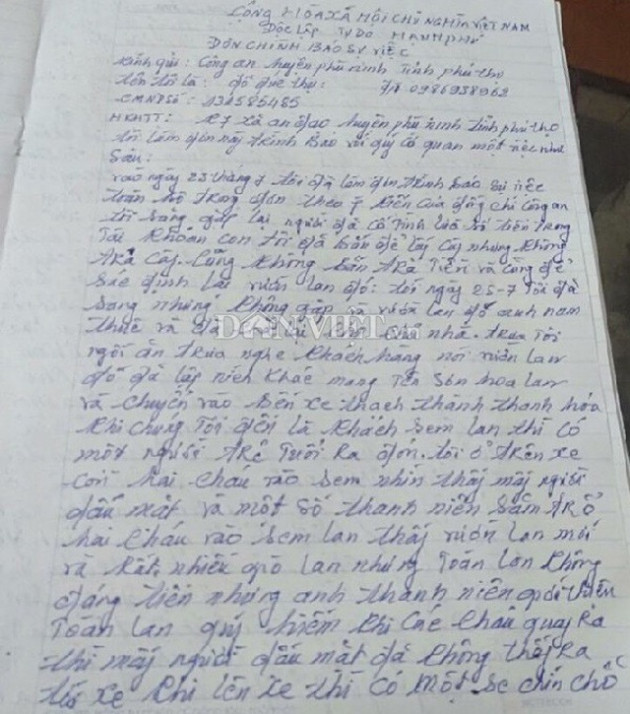 CỘNG HÒA XÃ HỘI CHỦ NGHĨA VIỆT NAM
Độc Lập Tự DO HẠNH PHÚ
ĐƠN CHÌNH BÁO SỰ VIỆC
Kính gửi : Công an huyện phù ninh Tỉnh phú thọ
tên tôi là : đỗ đức thụ:
CMND số : 131585485
HKTT: K7 xã an đạo huyện phù ninh tỉnh phú thọ
tôi làm đơn này trình báo với quý cơ quan một việc như
sau:
vào ngày 23 tháng 7 tôi đã làm đơn trình báo sự việc
toàn bộ trong đơn theo ý kiến của đồng chí công an
tôi sang gặp lại người đã cố tình lừa lấy tiền trong
Tài khoản con tôi đã bán để lấy cây nhưng không
TRẢ cây. cũng không bắn TRẢ Tiền và cũng để
sác định lại vườn lan đó: tới ngày 25-7 Tôi đã
sang nhưng không gặp và vườn lan đó anh nam
thuê và đã lại cho chủ nhà. trưa Tôi
ngồi ăn trưa nghe khách hàng nói viên lan
đó đã lập ních khác mang Tên sơn hoa lan
và chuyển vào bến xe thạch thành thanh hóa
khi chúng Tôi đến là khách sem lan thì có
một người TRẺ Tuổi Ra đón. tôi ở trên xe
còn hai cháu vào sem nhìn thấy mấy người
dấu mặt và một số thanh niên săm TRỔ
hai cháu vào sem lan thấy vườn lan mới
và Rất nhiều giò lan nhưng Toàn lan không
đáng tiền nhưng anh thanh niên giới thiệu
Toàn lan quý hiếm khi các cháu quay Ra
thì mấy người dấu mặt đã không thấy Ra
khi lên xe thì có một xe chín chỗ
DÂNVIỆT.vn